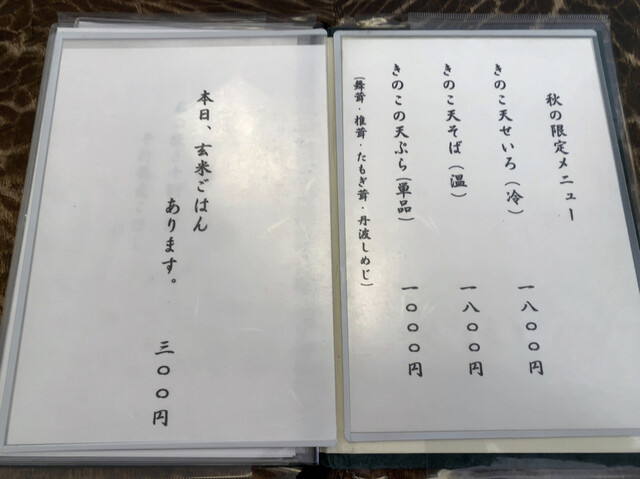 秋の限定メニュー
きのこ天せいろ（冷）　一八〇〇円
きのこ天そば（温）　一八〇〇円
きのこの天ぷら（単品）　一〇〇〇円
（舞茸・椎茸・たもぎ茸・丹波しめじ）
本日、玄米ごはん
あります。　三〇〇円